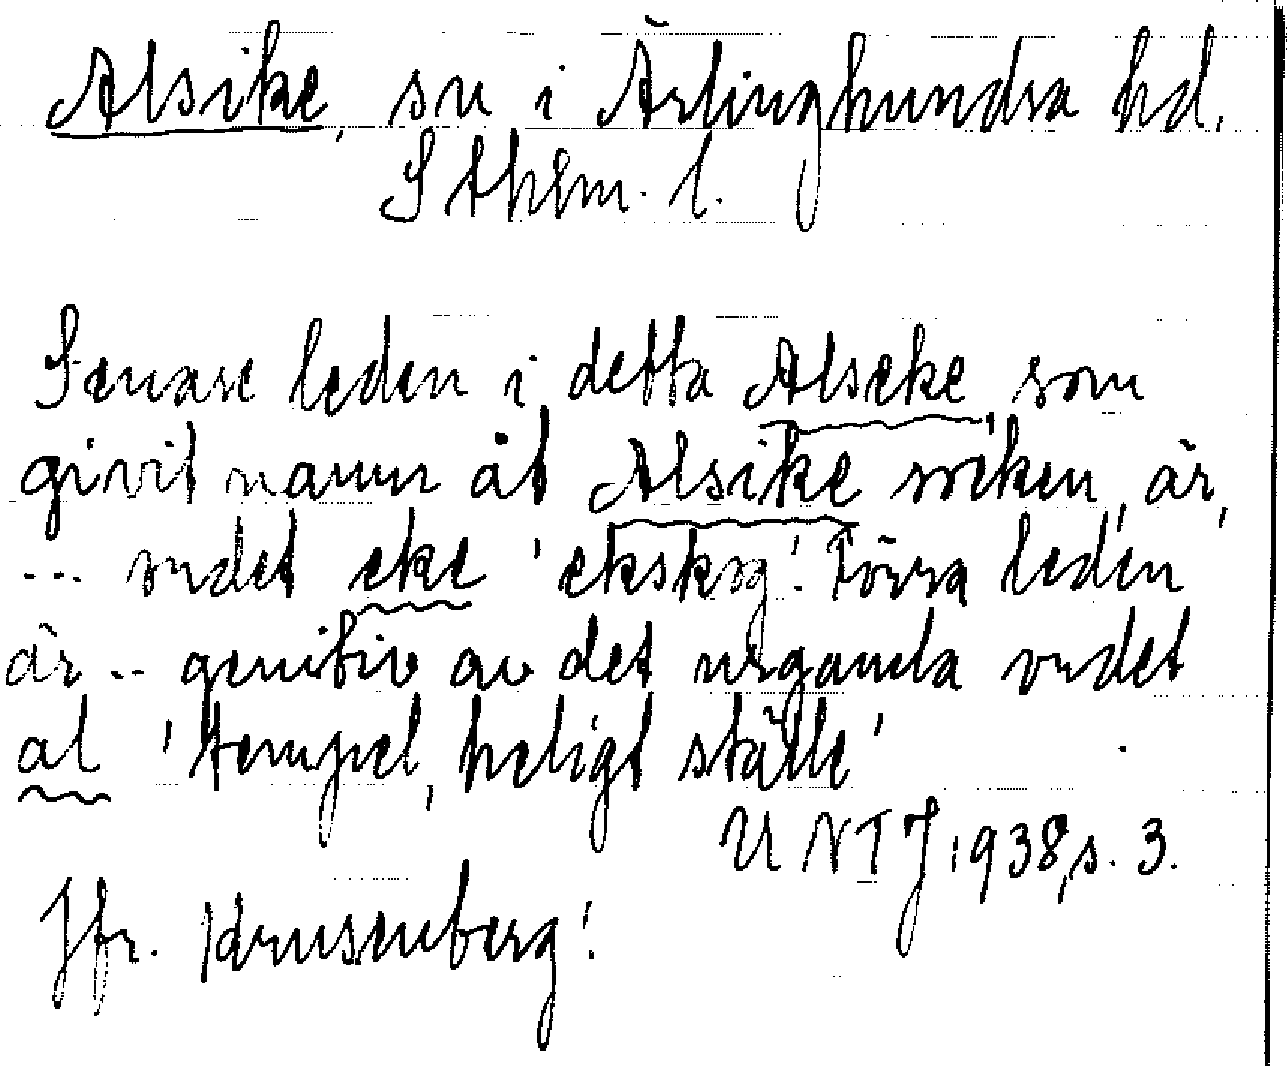 Alsike, sn i Ärlinghundra hd.
Sthlm. l.
Senare leden i detta Alseke, som
givit namn åt Alsike socken, är,
... ordet eke 'ekskog'. Förra leden
är .. genitiv av det urgamla ordet
al 'tempel, heligt ställe'
UNTJ 1938, s. 3.
Jfr. Krusenberg!